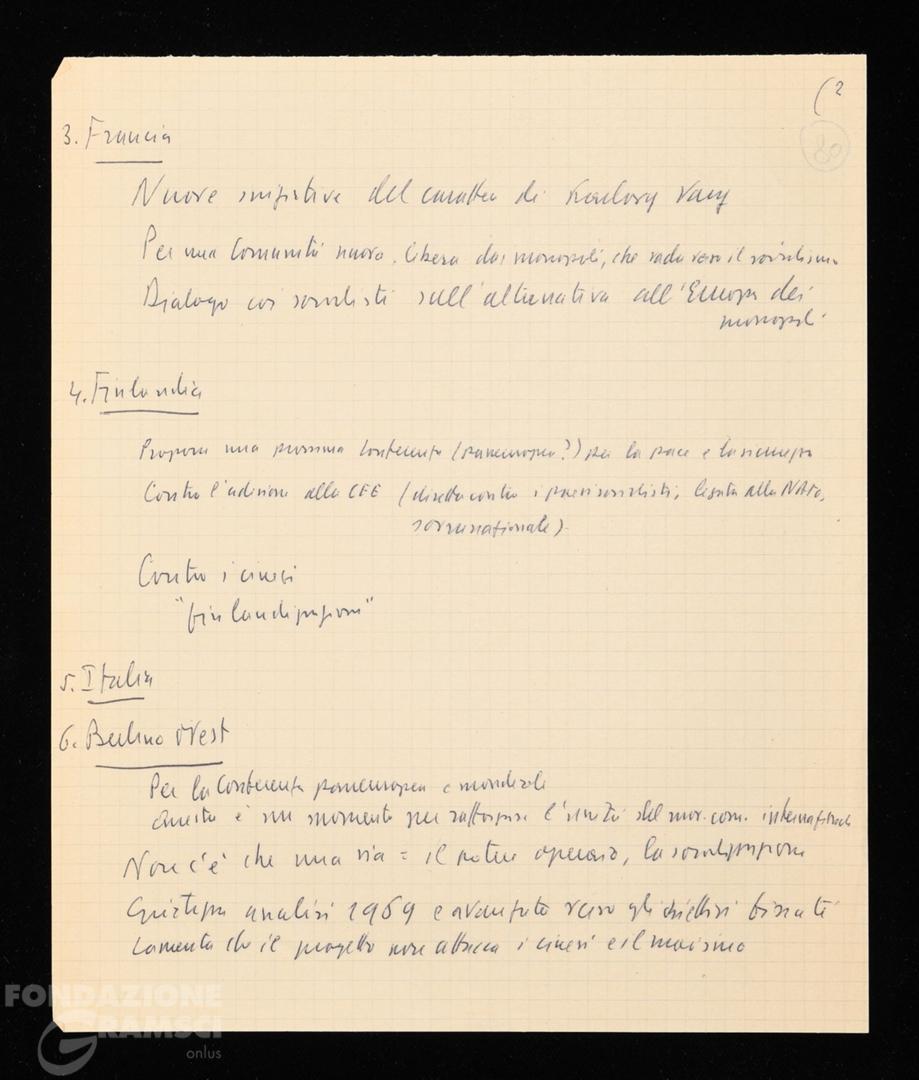 (2
80
3. Francia
Nuove iniziative del carattere di Karlovy Vary
Per una Comunità nuova, libera dai monopoli, che vada verso il socialismo
Dialogo coi socialisti sull'alternativa all'Europa dei
monopoli
4. Finlandia
Propone una prossima Conferenza (paneuropea?) per la pace e la sicurezza
Contro l'adesione alla CEE (diretta contro i paesi socialisti, legata alla NATO,
sovranazionale).
Contro i cinesi
"finlandizzazione"
5. Italia
6. Berlino Ovest
Per la Conferenza paneuropea e mondiale
Questo è un momento per rafforzare l'unità del mov. com. internazionale
Non c'è che una via = il potere operaio, la socialisazione
Giustezza analisi 1969 e avanzata verso gli obiettivi fissati
Lamenta che il progetto non attacca i cinesi e il maoismo
FONDAZIONE
GRAMSCI
onlus